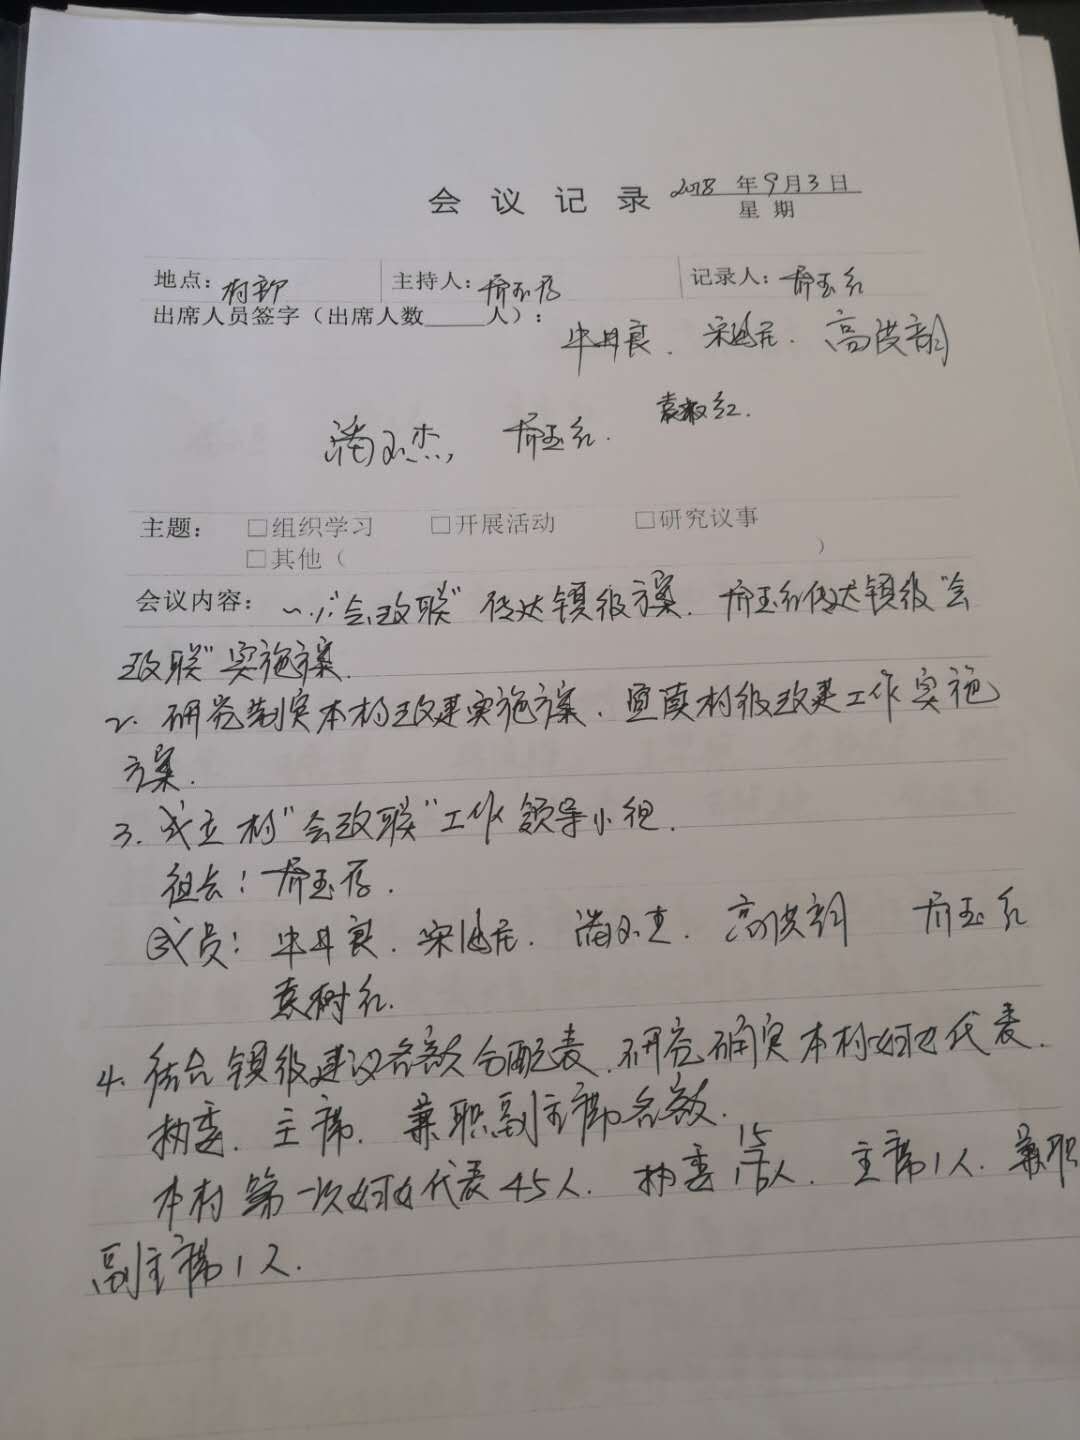 会议记录 2018年9月3日
星期
地点：村部 主持人：乔玉存 记录人：乔玉红
出席人员签字（出席人数____人）：
牛丹良、宋 高俊韵
潘 杰， 乔玉红． 袁树红．
主题： □组织学习 □开展活动 □研究议事
□其他（ ）
会议内容： 一、1."会改联"传达镇级方案．乔玉红传达镇级"会
改联"实施方案．
2. 研究制定本村改建实施方案．宣读村级改建工作实施
方案．
3. 成立村"会改联"工作领导小组．
组长：乔玉存．
成员：牛丹良．宋 潘 杰．高俊韵 乔玉红
袁树红．
4. 结合镇级建议名额分配表．研究确定本村妇女代表．
执委．主席．兼职副主席名额．
本村第一次妇女代表45人．执委15人．主席1人．兼职
副主席1人．